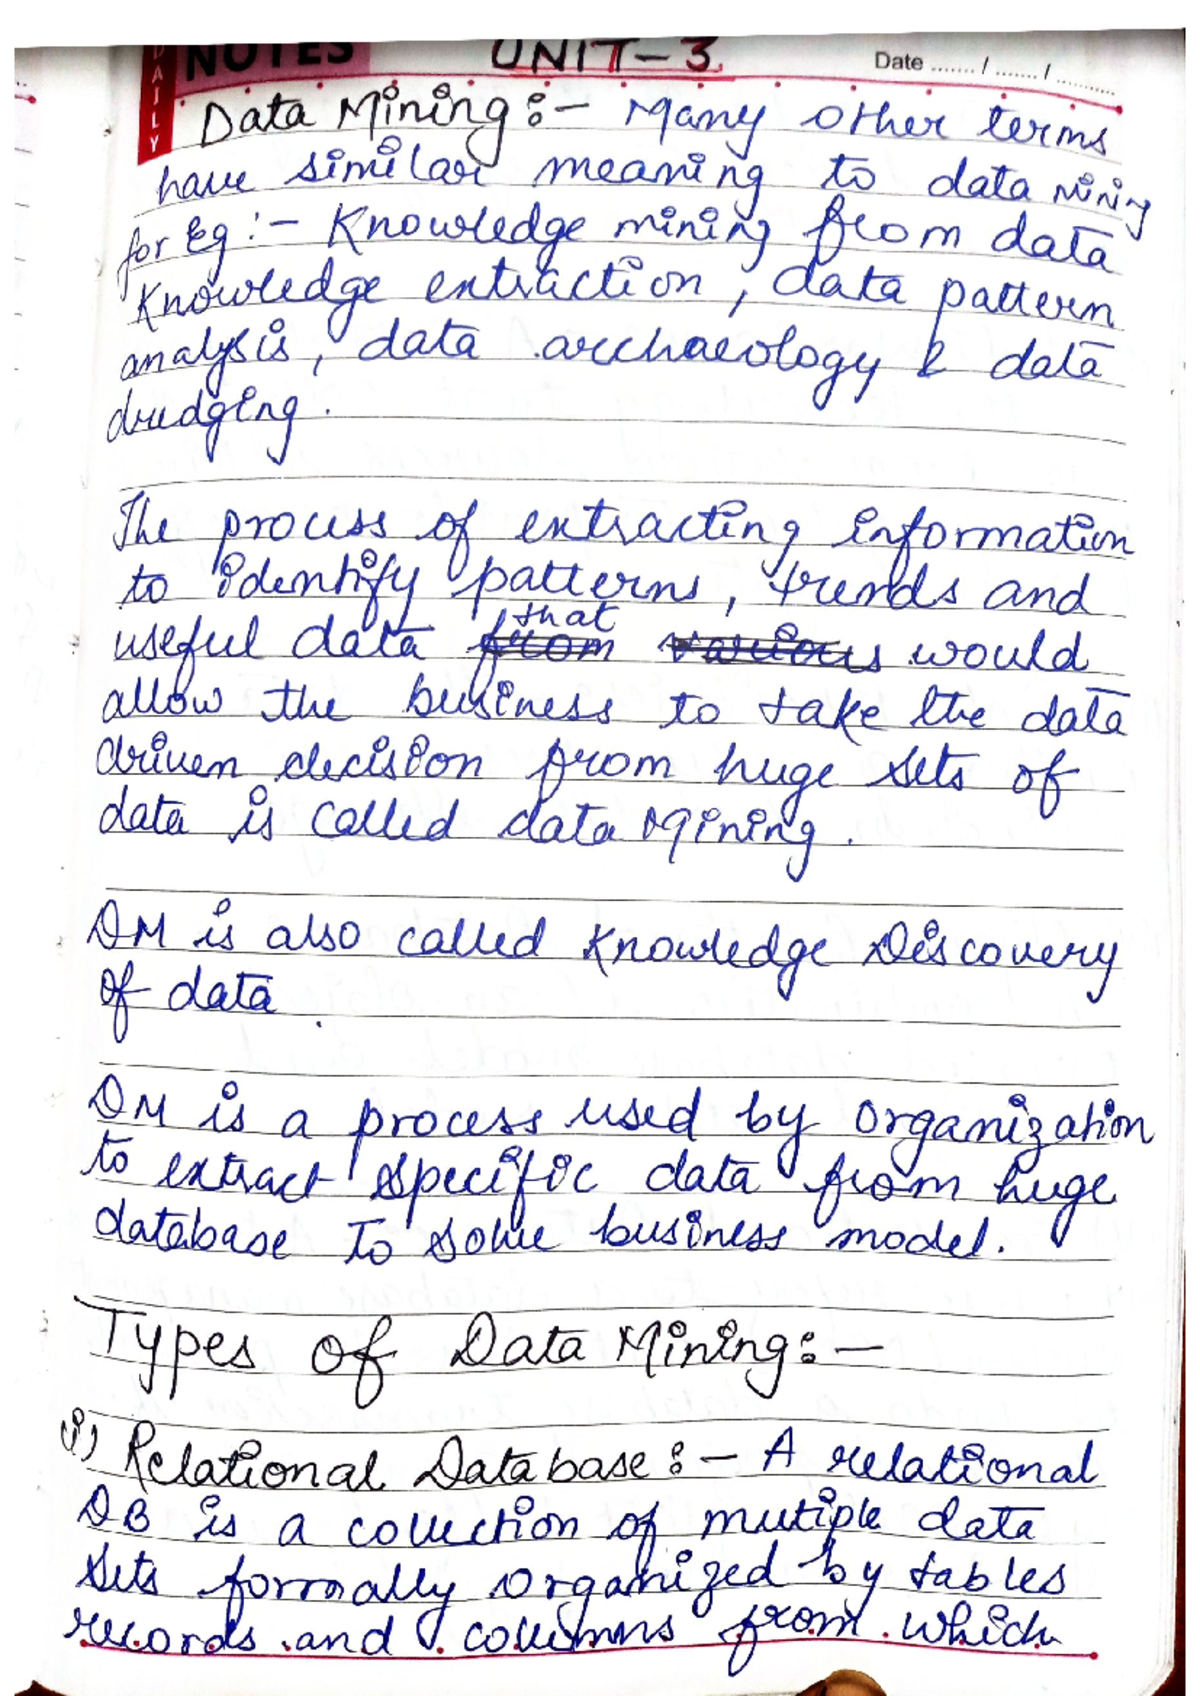 DAILY NOTES UNIT-3 Date ....... / ....... / ..........
Data Mining :- Many other terms
have similar meaning to data mining
for Eg :- Knowledge mining from data
Knowledge extraction, data pattern
analysis, data archaeology & data
drudging.
The process of extracting information
to identify patterns, trends and
useful data that would
allow the business to take the data
driven decision from huge sets of
data is called data Mining.
DM is also called Knowledge Discovery
of data.
DM is a process used by organization
to extract specific data from huge
database to solve business model.
Types of Data Mining :-
(i) Relational Database :- A relational
DB is a collection of multiple data
sets formally organized by tables
records and columns from which